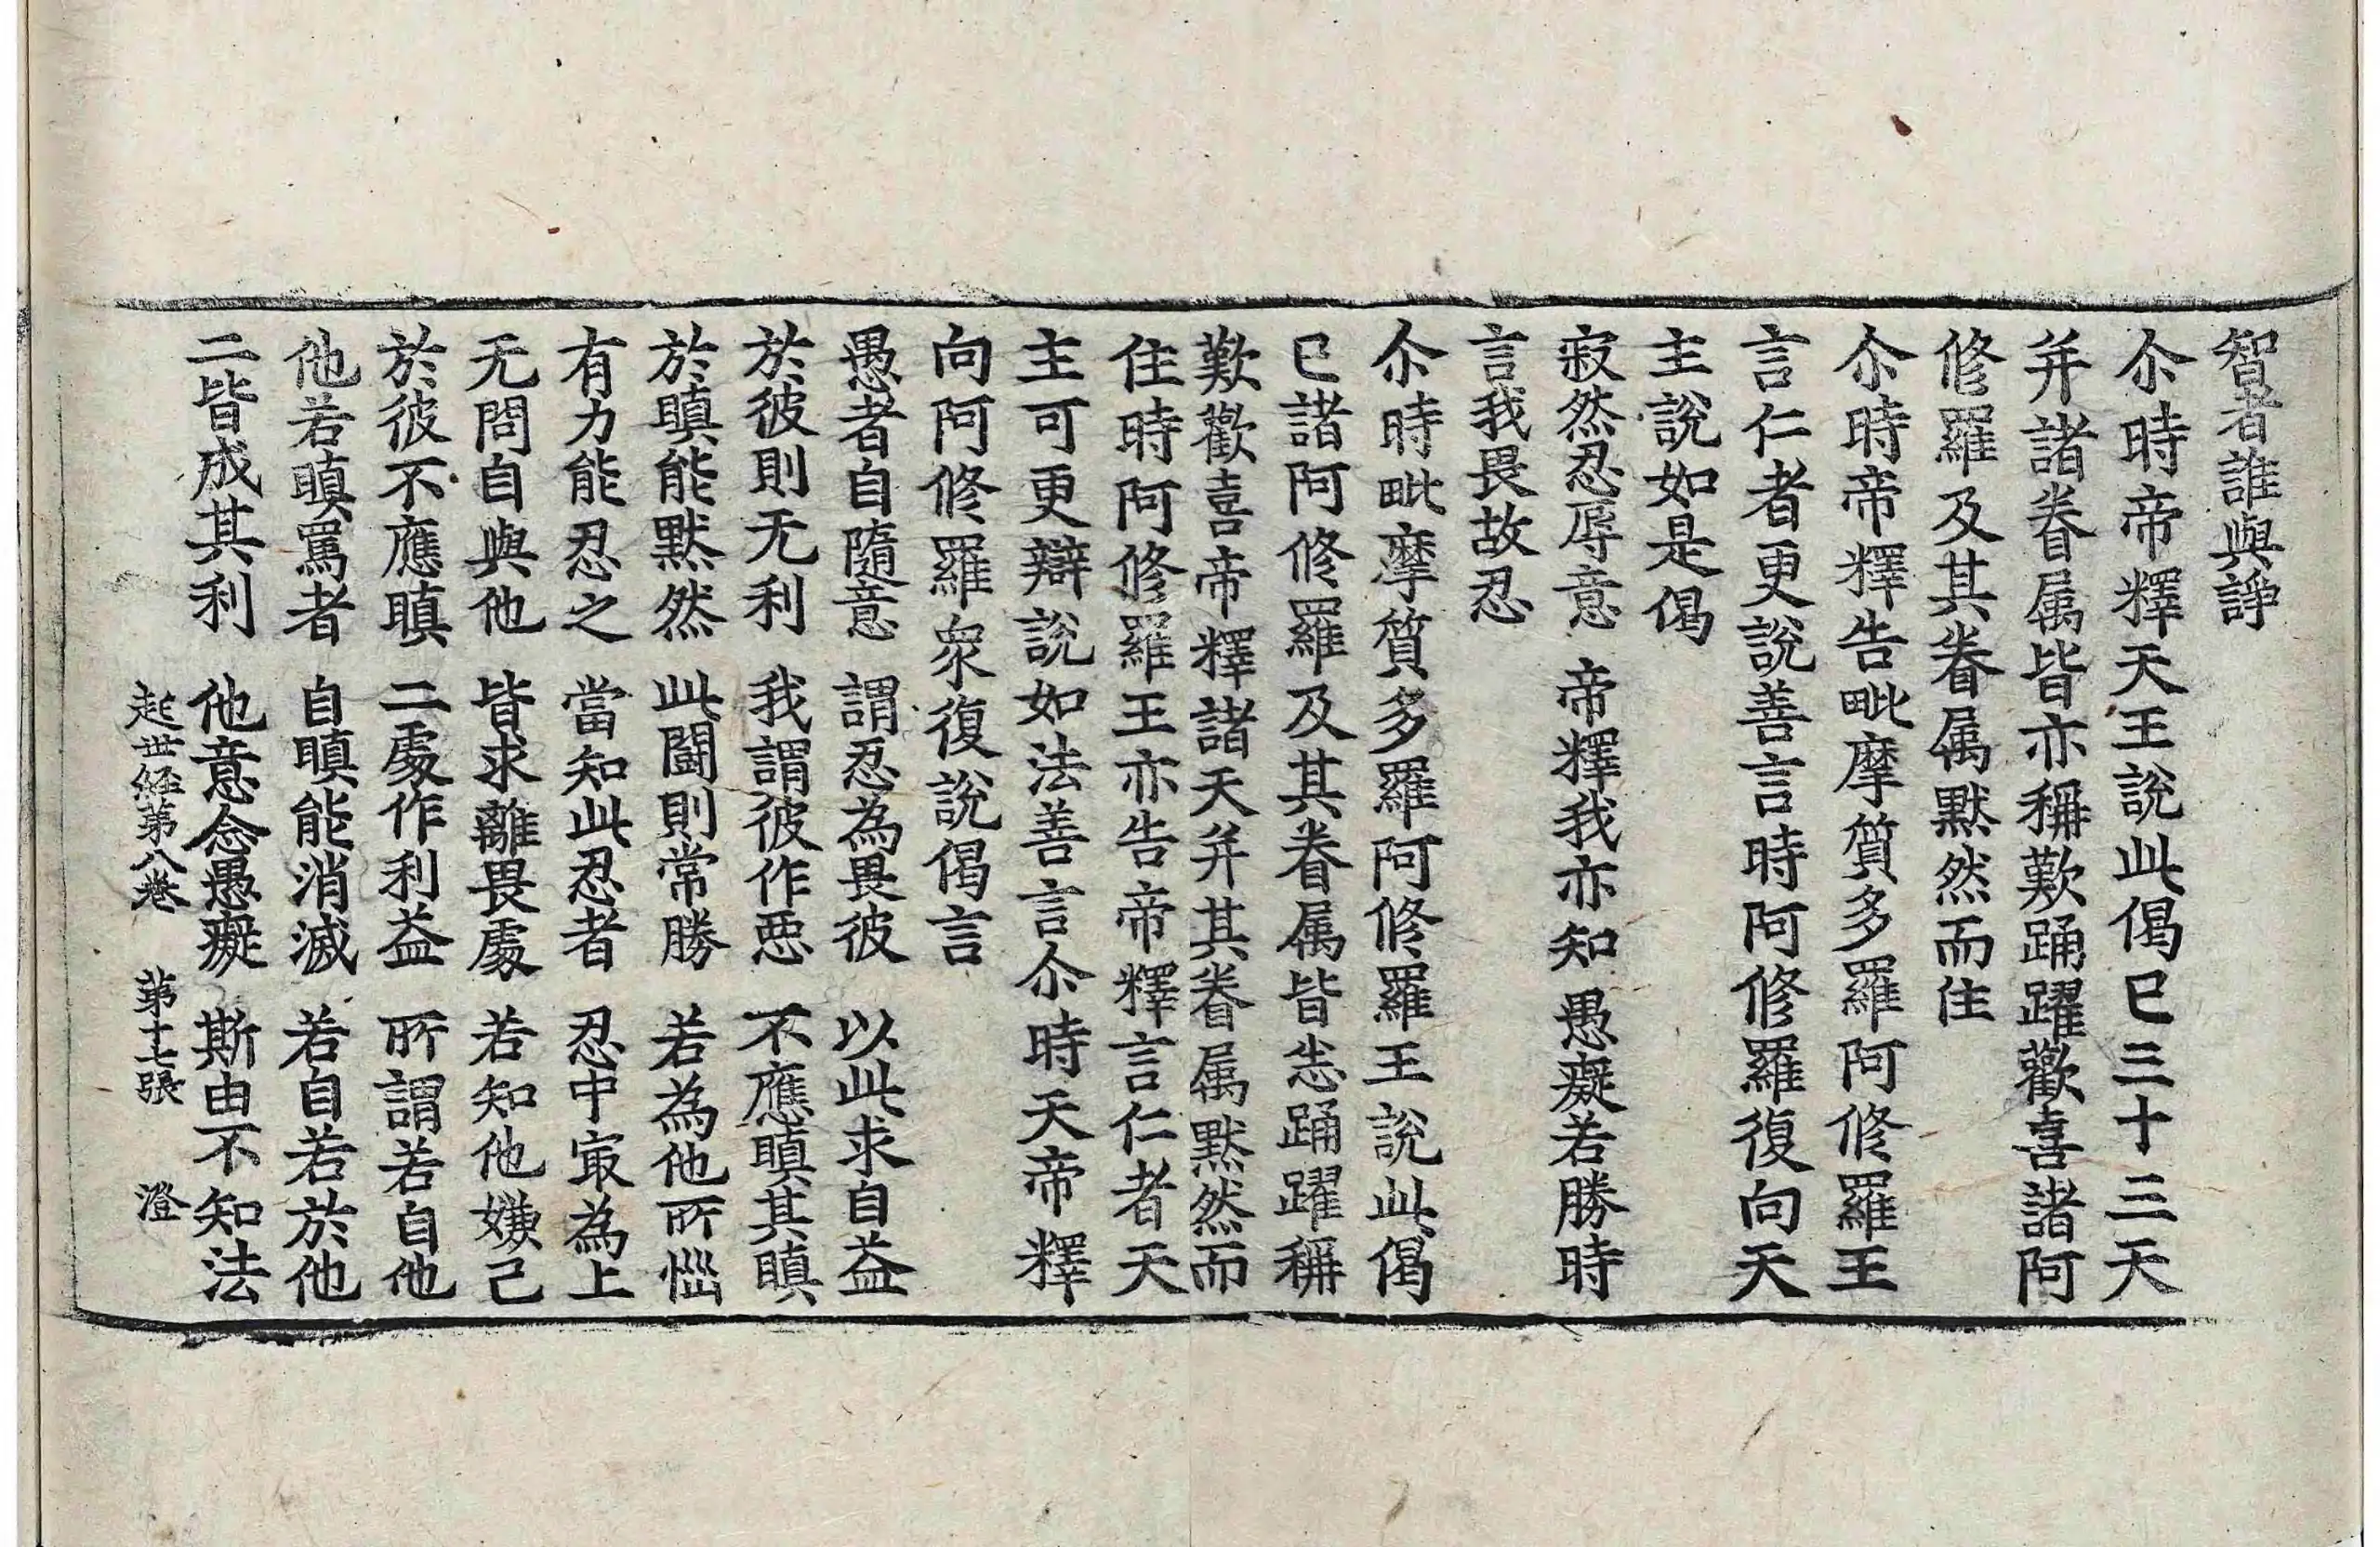 智者誰與諍
尒時帝釋天王說此偈已三十三天
并諸眷属皆亦稱歎踊躍歡喜諸阿
修羅及其眷属默然而住
尒時帝釋告毗摩質多羅阿修羅王
言仁者更說善言時阿修羅復向天
主說如是偈
寂然忍辱意　帝釋我亦知　愚癡若勝時
言我畏故忍
尒時毗摩質多羅阿修羅王說此偈
已諸阿修羅及其眷属皆悉踊躍稱
歎歡喜帝釋諸天并其眷属默然而
住時阿修羅王亦告帝釋言仁者天
主可更辯說如法善言尒時天帝釋
向阿修羅眾復說偈言
愚者自隨意　謂忍為畏彼　以此求自益
於彼則无利　我謂彼作悪　不應瞋其瞋
於瞋能默然　此鬪則常勝　若為他所惱
有力能忍之　當知此忍者　忍中㝡為上
无問自與他　皆求離畏處　若知他嫌己
於彼不應瞋　二處作利益　所謂若自他
他若瞋罵者　自瞋能消滅　若自若於他
二皆成其利　他意念愚癡　斯由不知法
起世経第八卷　第十七張　澄